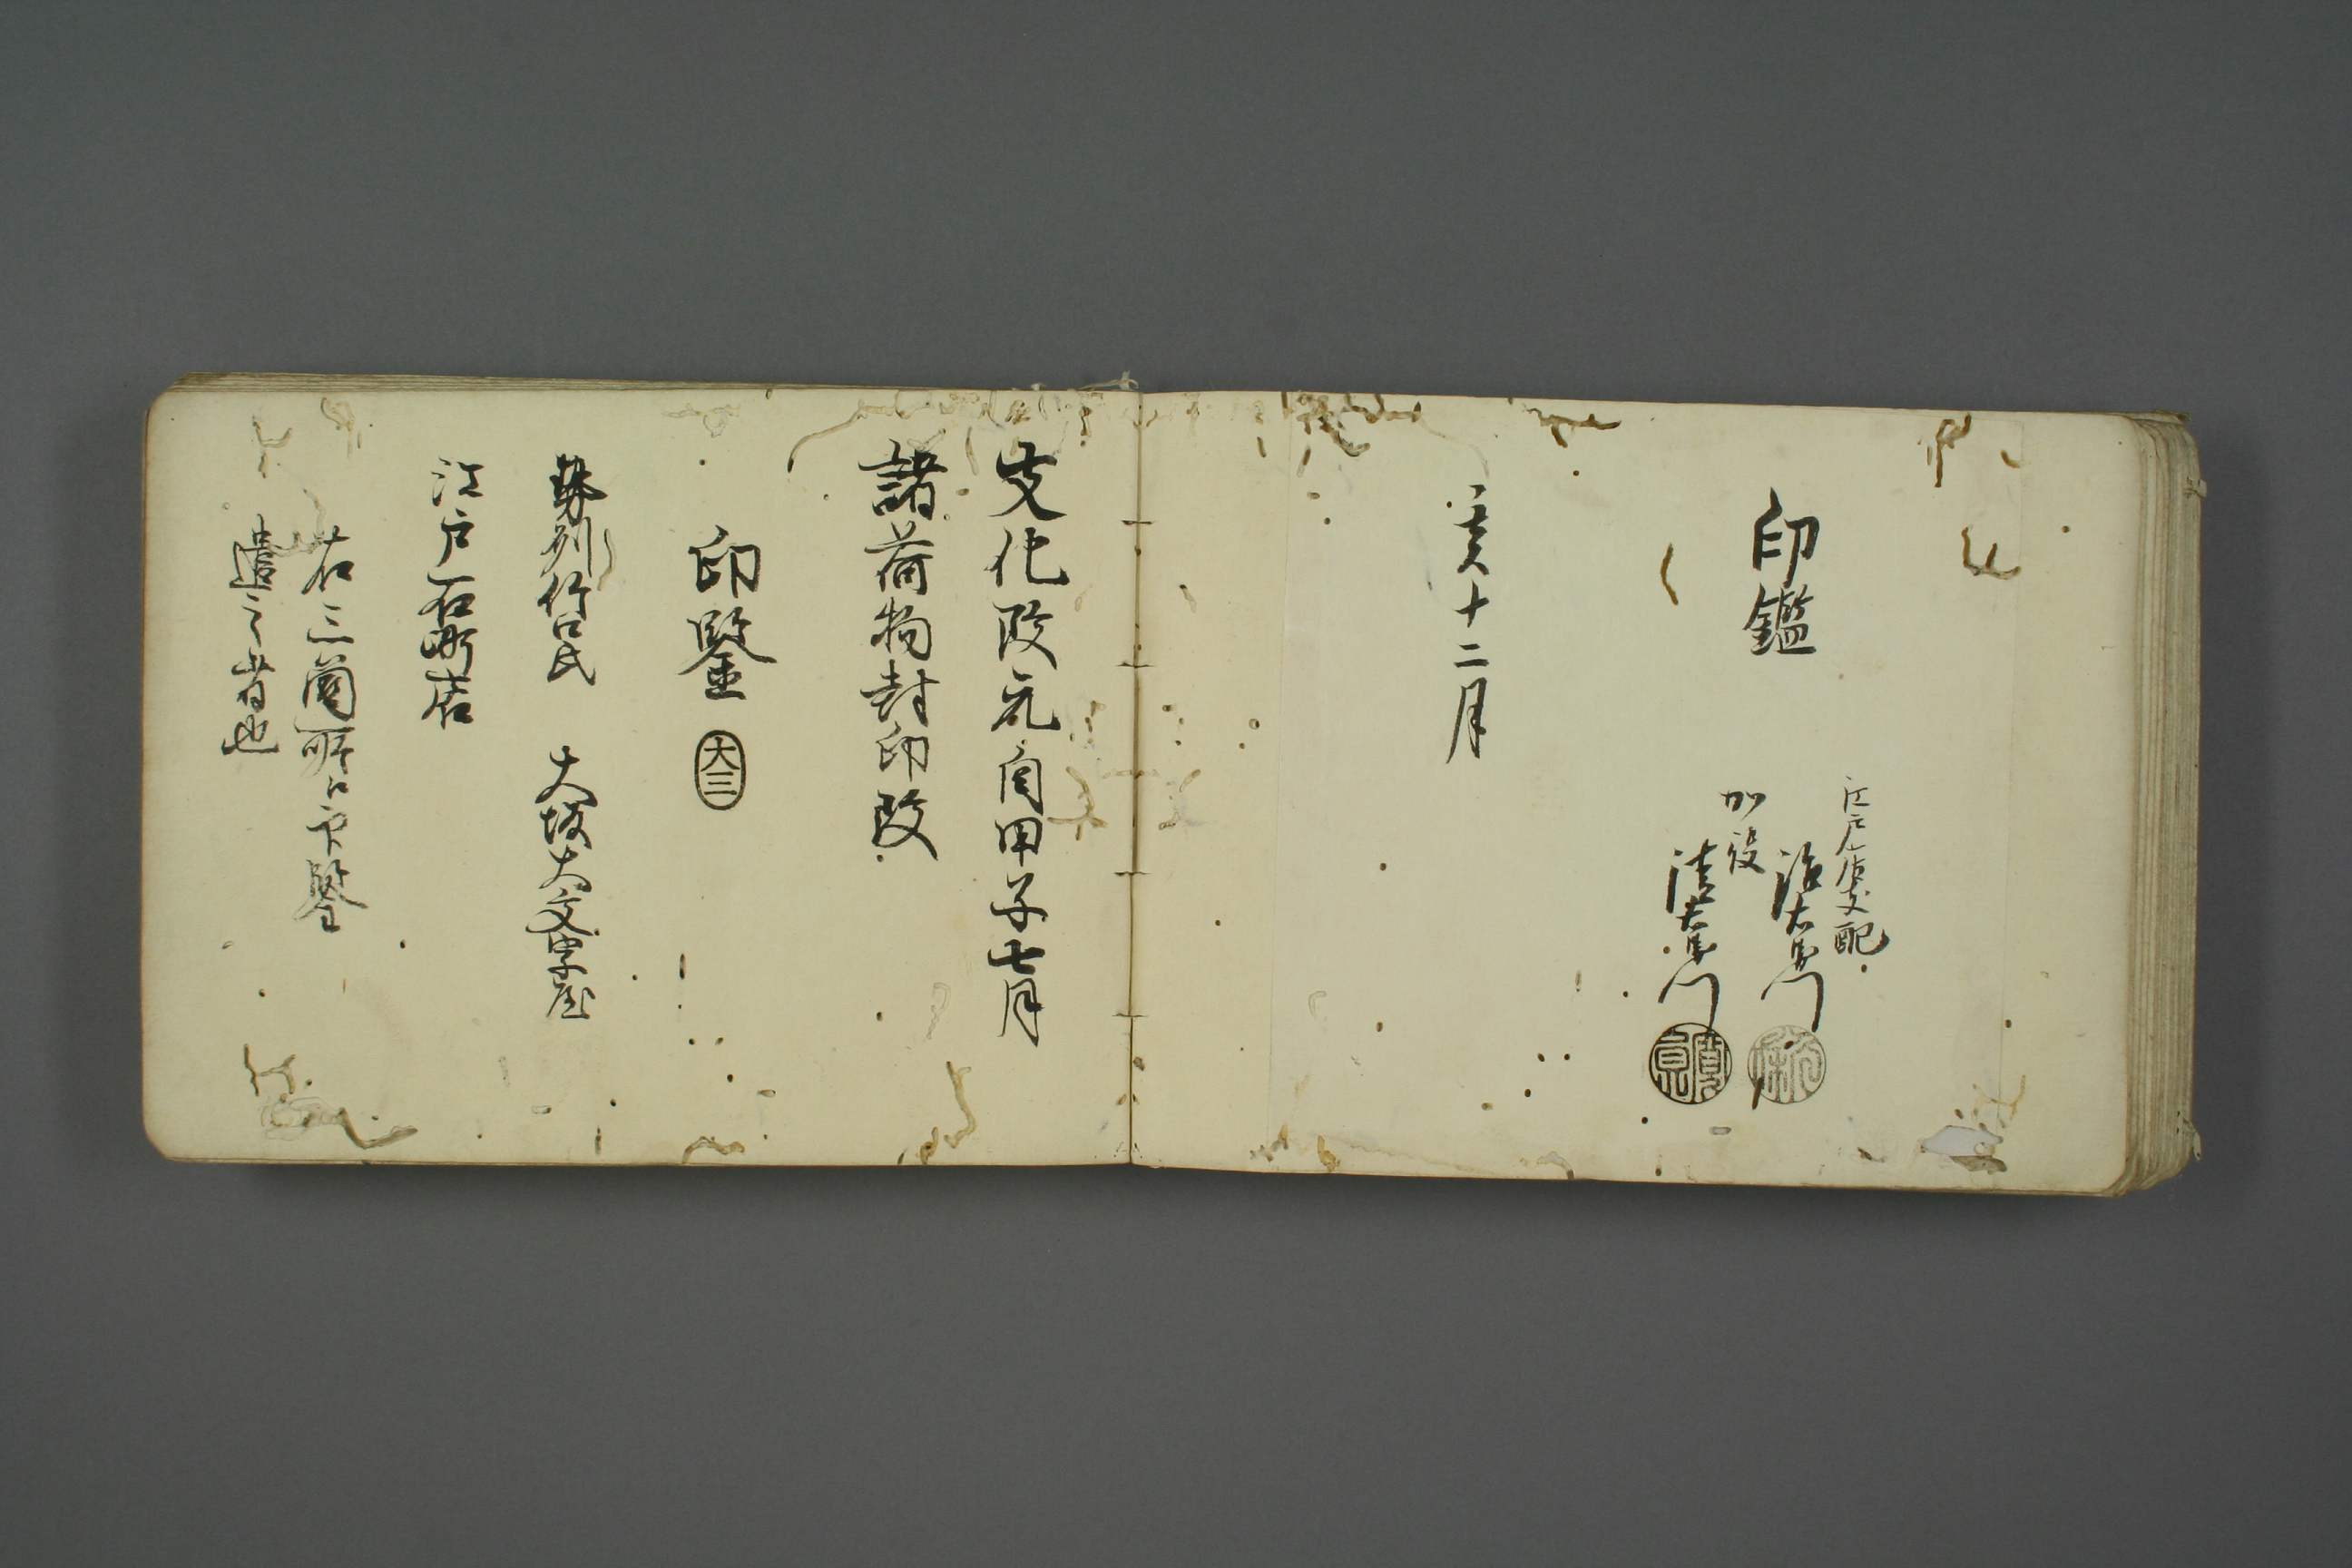 印鑑
江戸店支配
治右衛門
加役
清右衛門
亥十二月
文化改元自甲子七月
諸荷物封印改
印鑒
大三
勢州竹口氏
大坂大文字屋
江戸石町店
右三箇所江印鑒
遣之者也